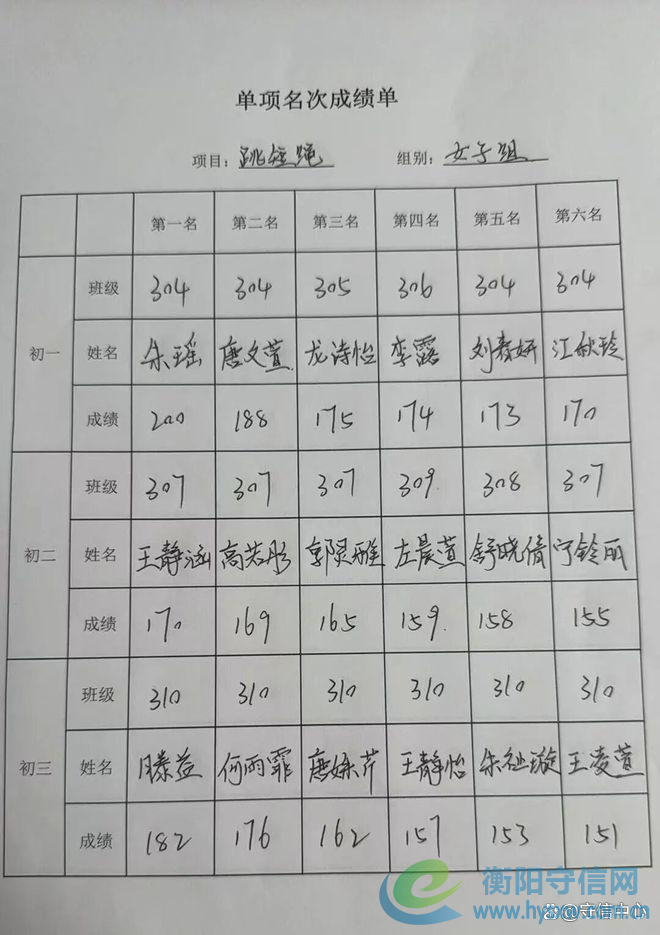 单项名次成绩单
项目：跳短绳 组别：女子组
第一名 第二名 第三名 第四名 第五名 第六名
初一
班级 304 304 305 306 304 304
姓名 朱瑶 唐文萱 龙诗怡 李露 刘春妍 江秋玲
成绩 200 188 175 174 173 170
初二
班级 307 307 307 309. 308 307
姓名 王静涵 高若彤 郭灵雅 左晨萱 舒晓倩 宁铃丽
成绩 170 169 165 159. 158 155
初三
班级 310 310 310 310 310 310
姓名 滕益 何雨霏 唐姝芹 王静怡 朱祉璇 王凌萱
成绩 182 176 162 157 153 151
衡阳守信网
守信中心